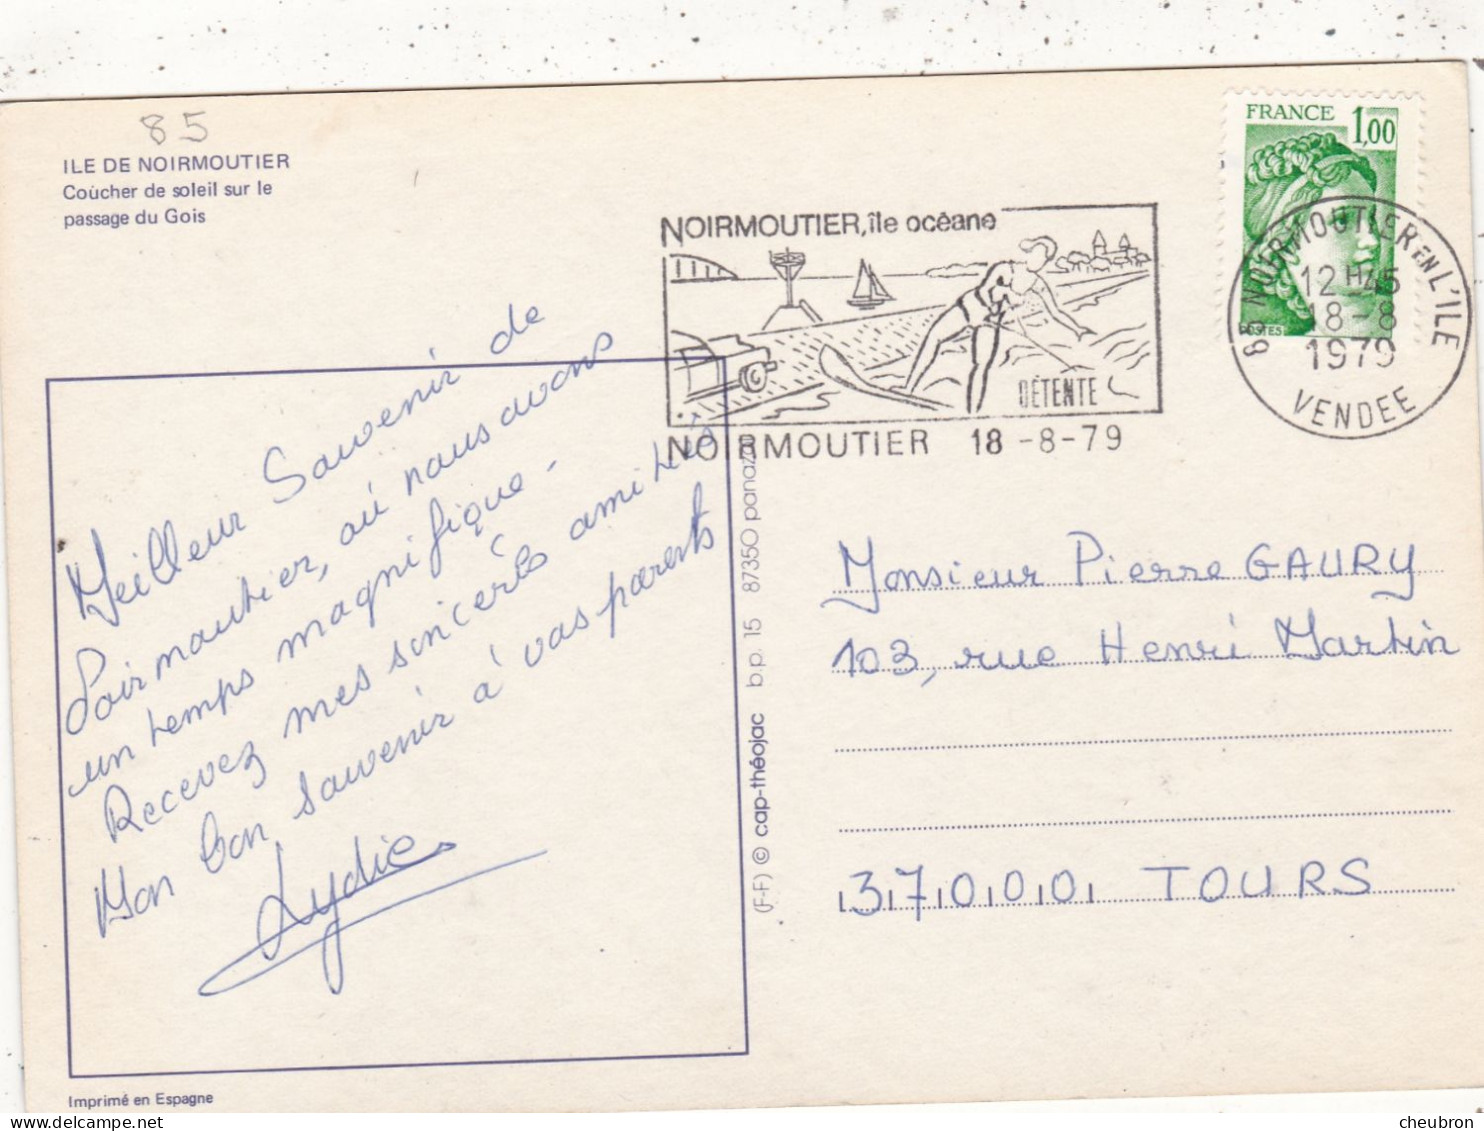 85
ILE DE NOIRMOUTIER
Coùcher de soleil sur le
passage du Gois
Meilleur Souvenir de
Noirmoutier, où nous avons
un temps magnifique -
Recevez mes sincères amitiés
Mon bon souvenir à vos parents
Lydie
Imprimé en Espagne
(F-F) © cap-théojac b.p. 15 87350 panazol
NOIRMOUTIER, île océane
DÉTENTE
NOIRMOUTIER 18 -8-79
FRANCE 1,00
POSTES
8 NOIRMOUTIER EN L'ILE
12 H 45
18-8
1979
VENDEE
Monsieur Pierre GAURY
103, rue Henri Martin
37000 TOURS
cheubron